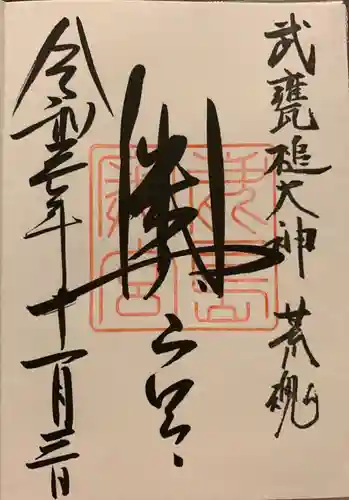 武甕槌大神 荒魂
奥宮
令和元年十一月三日